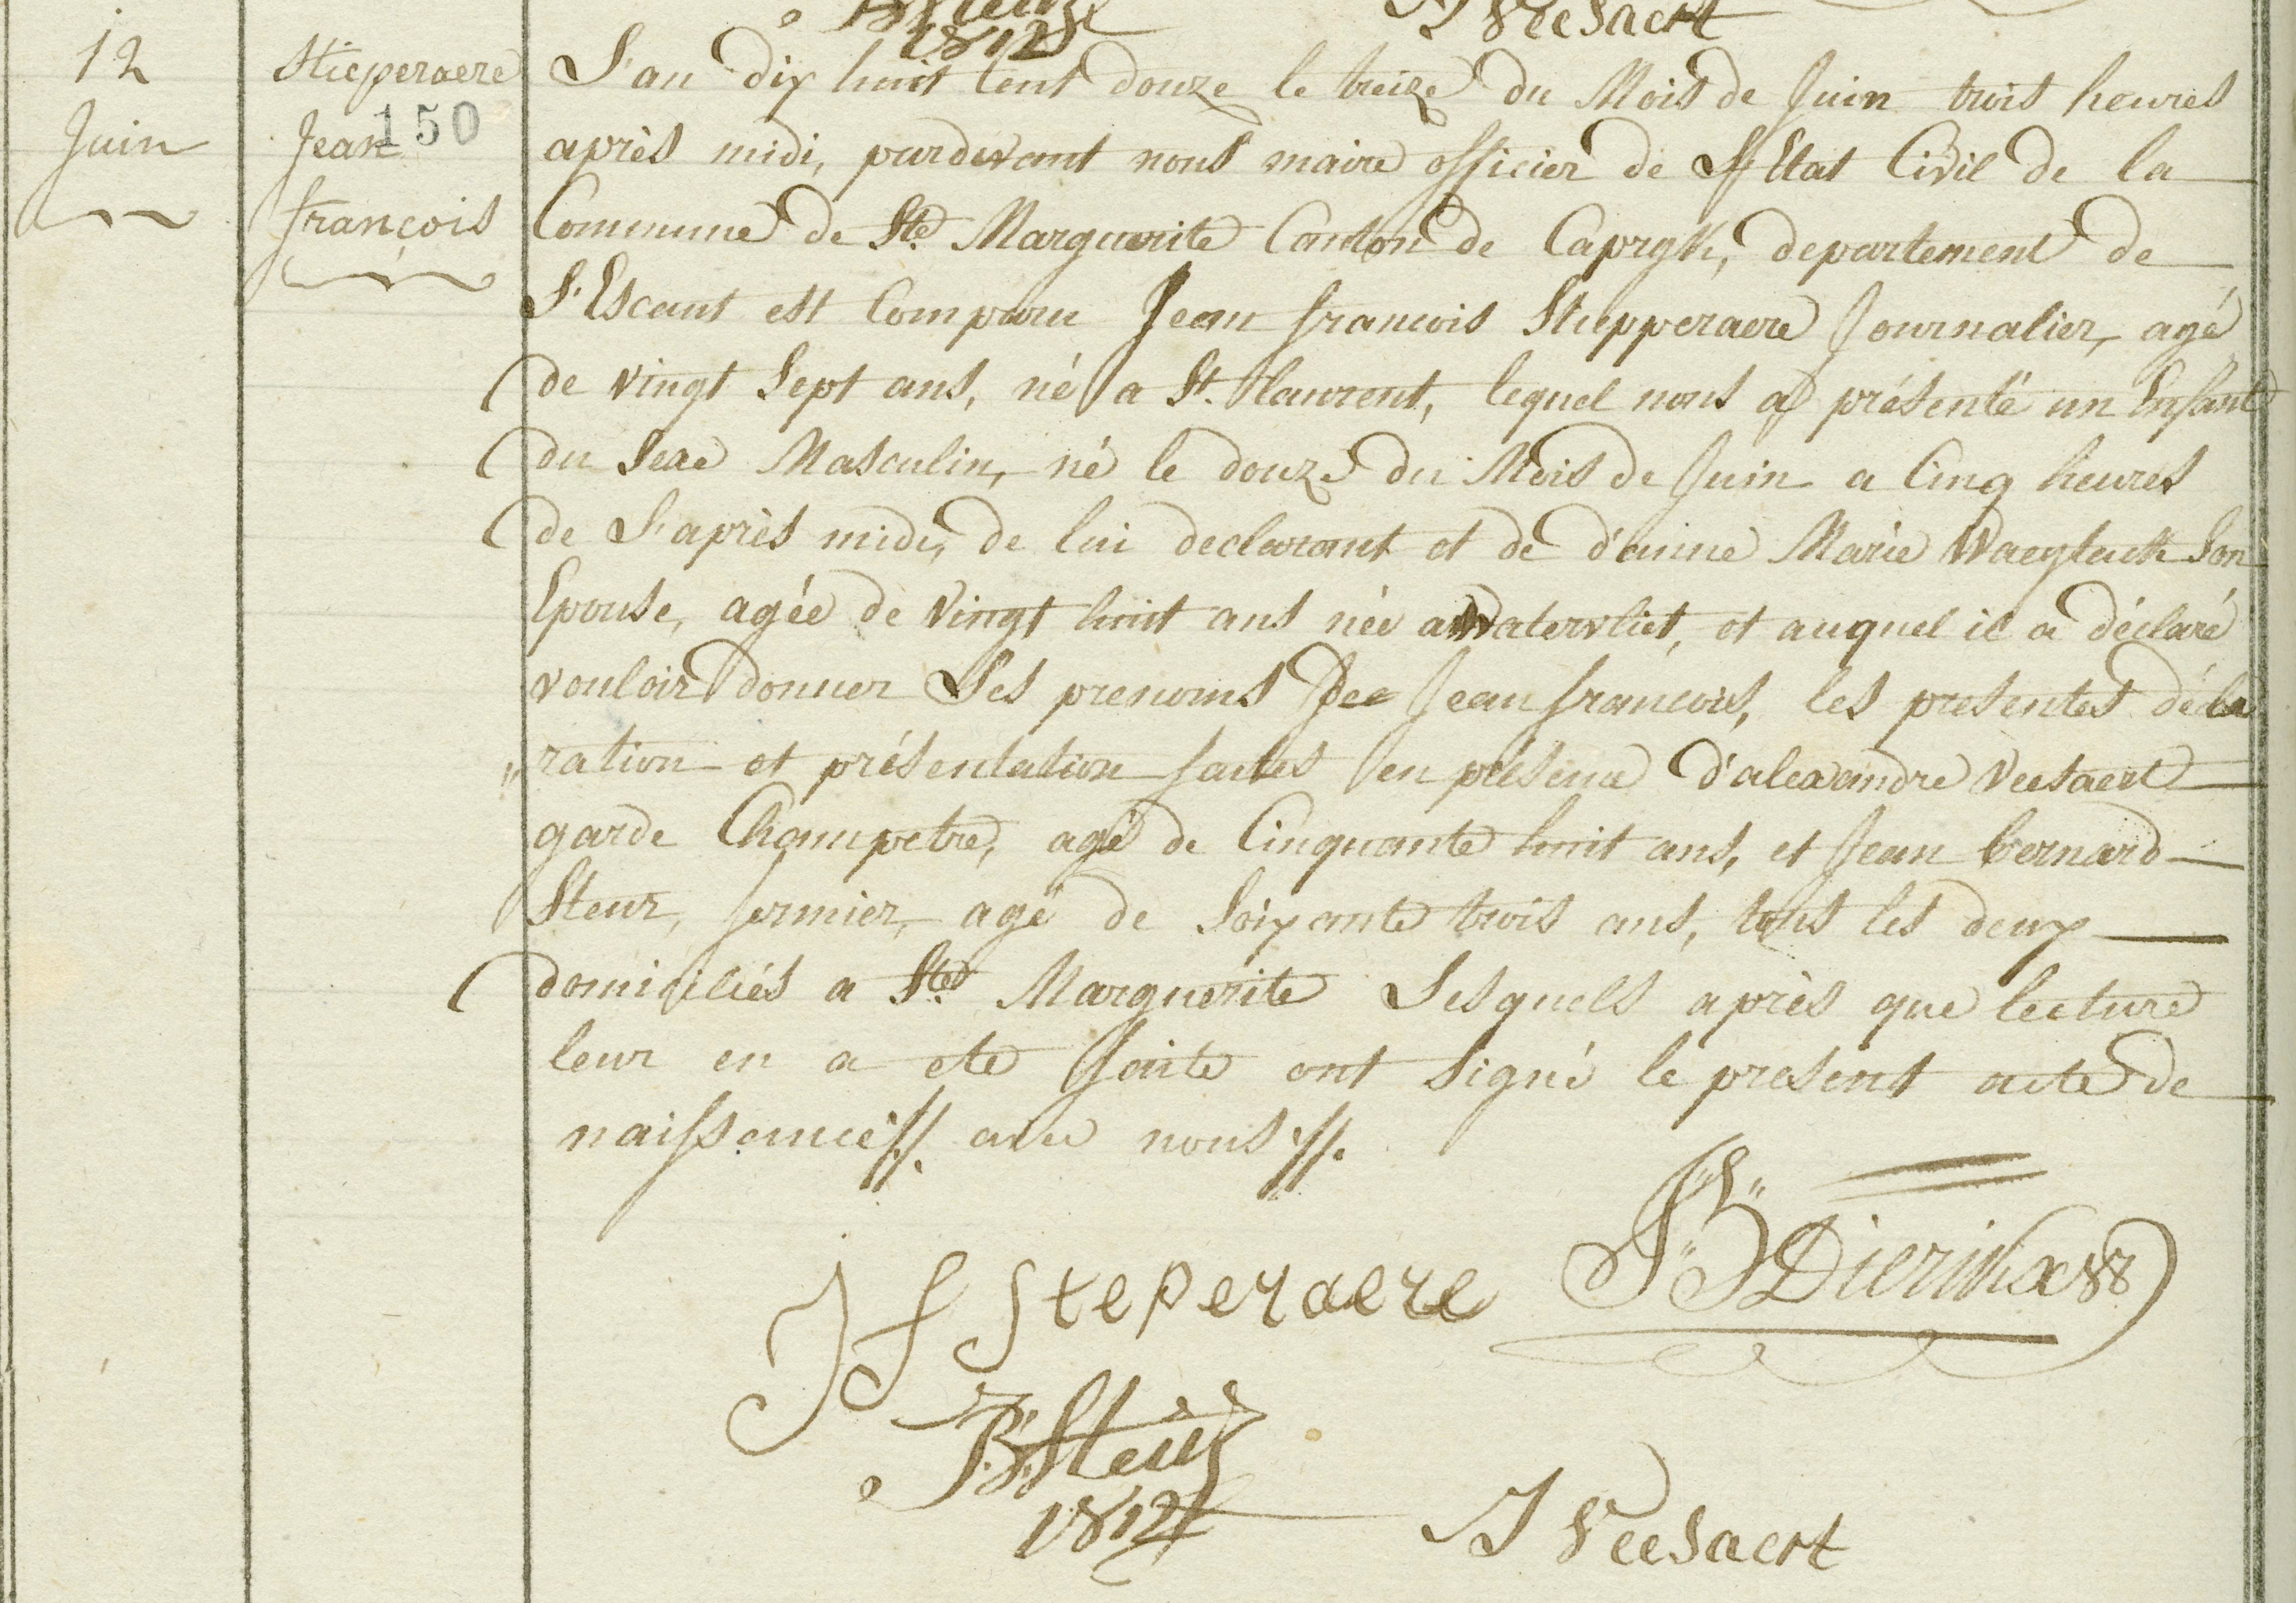 1812
J Veesaert
12
Juin
Stieperaere
Jean
150
françois
L'an dix huit Cent douze le treize du Mois de Juin trois heures
après midi, pardevant nous maire officier de L'Etat Civil de la
Commune de Ste. Marguerite Canton de Capryk, departement de
L'Escaut est Comparu Jean francois Stiepperaere Journalier, agé
de vingt Sept ans, né a St. Laurent, lequel nous a présenté un Enfant
du Sexe Masculin, né le douze du Mois de Juin a Cinq heures
de L'après midi, de lui declarant et de d'anne Marie Son
Epouse, agée de Vingt huit ans née a Watervliet, et auquel il a déclaré
vouloir donner Les prenoms Jean francois, les presentes décla
"ration et présentation faites en présence d'alexandre Veesaert
garde Champetre, agé de Cinquante huit ans, et Jean bernard
Steur, fermier, agé de Soixante trois ans, tous les deux
domiciliés a Ste. Marguerite Lesquels après que lecture
leur en a ete faite ont Signé le present acte de
naissance //. avec nous //.
J f Steperaere
Dierikx
B: Steur
1812
J Veesaert